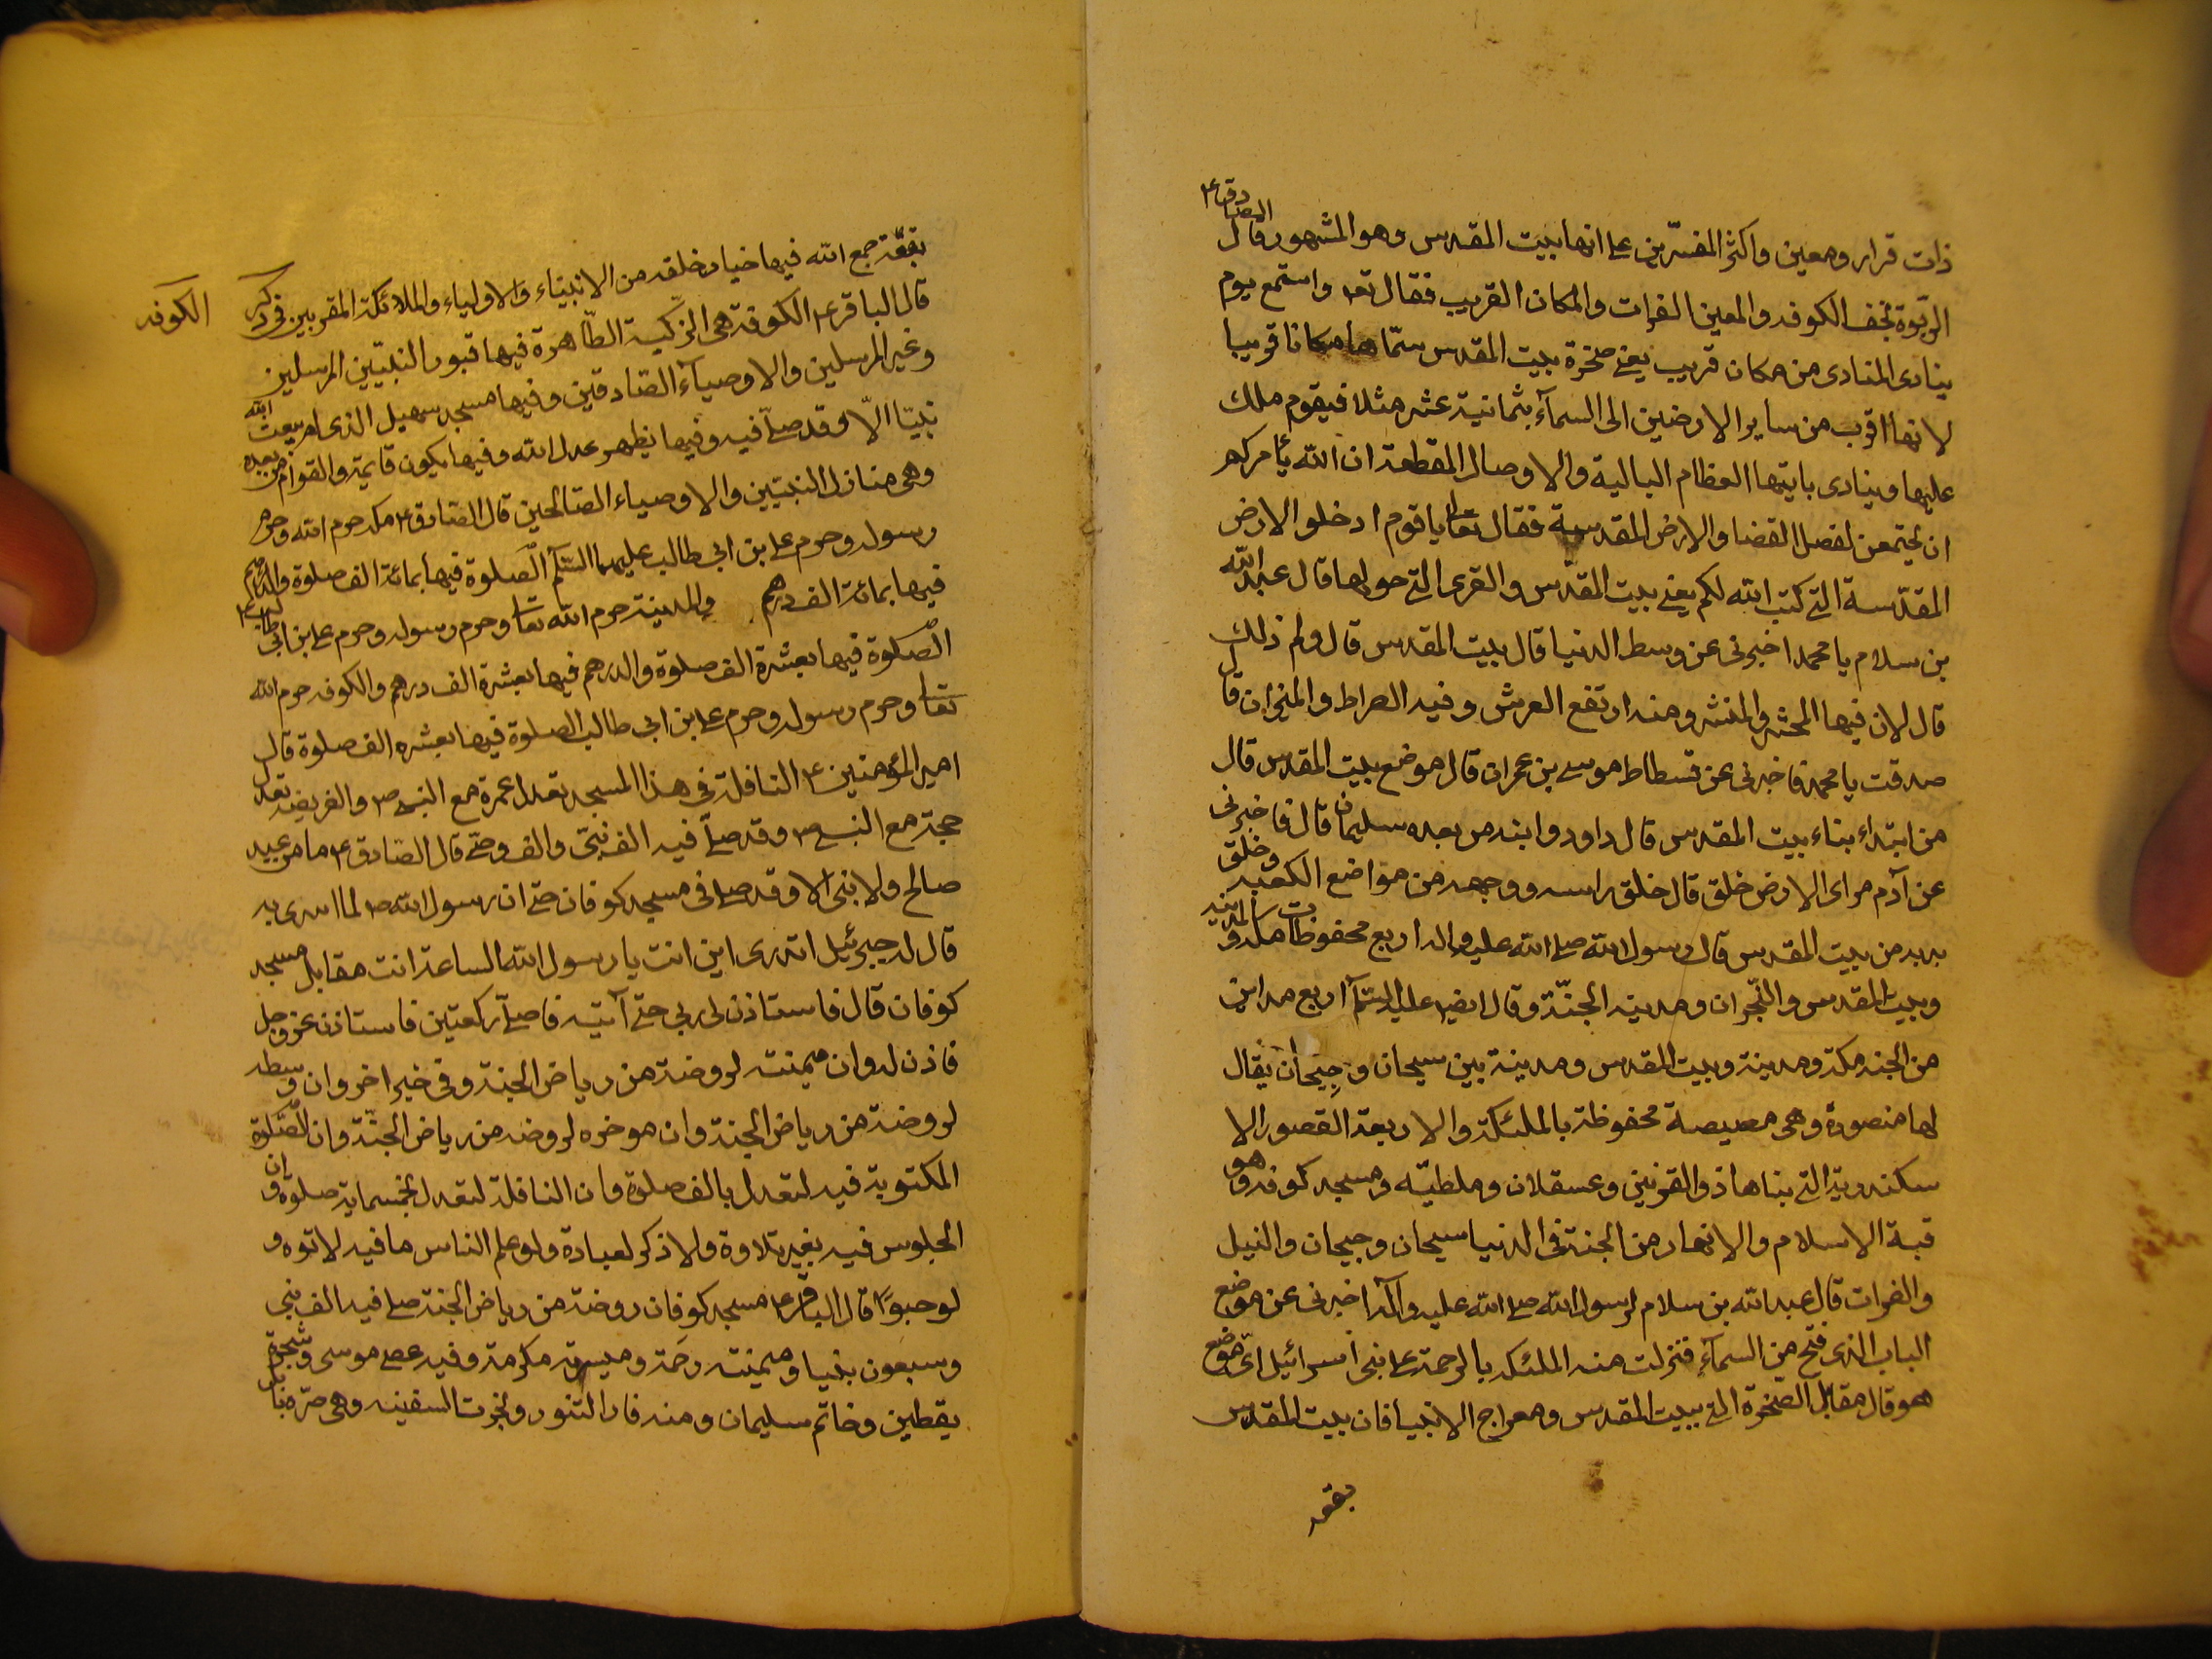 ذات قرار ومعين واكثر المفسّرين على انها بيت المقدس وهو المشهور قال الصادق ع
الربوة نجف الكوفه والمعين الفرات والمكان القريب فقال تعه واستمع يوم
ينادى المنادى من مكان قريب يعنى صخرة بيت المقدس سمّاها مكانا قريبا
لانها اقرب من ساير الارضين الى السمآء بثمانية عشر مثلا فيقوم ملك
عليها وينادى بايتها العظام البالية والاوصال المقطعة ان الله يأمركم
ان تجتمعن لفصل القضا والارض المقدسية فقال تعا يا قوم ادخلوا الارض
المقدّسة التى كتب الله لكم يعنى بيت المقدّس والقرى التى حولها قال عبد الله
بن سلام يا محمد اخبرنى عن وسط الدنيا قال بيت المقدس قال ولم ذلك
قال لان فيها المحشر والمنشر ومنه ارتفع العرش وفيه الصراط والميزان قال
صدقت يا محمد فاخبرنى عن فسطاط موسى بن عمران قال موضع بيت المقدس قال
من ابتداء بناء بيت المقدس قال داود وابنه من بعده سليمان قال فاخبرنى
عن آدم من اى الارض خلق قال خلق راسه ووجهه من مواضع الكعبه وخلق
بدبه من بيت المقدس قال رسول الله صلى الله عليه واله اربع محفوظات مكه والمدينه
وبيت المقدس والنجران ومدينه الجنّة وقال ايضا عليه السّلم اربع مداين
من الجنه مكة ومدينة وبيت المقدس ومدينة بين سيحان وجيحان يقال
لها منصورة وهى مصيصة محفوظة بالملئكة والاربعة القصور الا
سكندرية التى بناها ذو القرنين وعسقلان وملطيّه ومسجد كوفه وهو
قبة الاسلام والانهار من الجنة فى الدنيا سيحان وجيحان والنيل
والفرات قال عبد الله بن سلام لرسول الله صلى الله عليه وآله اخبرنى عن موضع
الباب الذى فتح من السمآء فنزلت منه الملئكه بالرحمة على بنى اسرائيل اى موضع
هو قال مقابل الصخرة التى ببيت المقدس ومعراج الانبيا فان بيت المقدس
بقعه
بقعّة جمع الله فيها خيار خلقه من الانبياء والاولياء والملائكة المقربين فى ذكر
الكوفه
قال الباقر ع الكوفة هى الزكية الطّاهرة فيها قبور النبيّين المرسلين
وغير المرسلين والاوصيآء الصّادقين وفيها مسجد سهيل الذى لم يبعث الله
نبيّا الّا وقد صلّى فيه وفيها يظهر عدل الله وفيها يكون قايمة والقوام من بعده
وهى منازل النبيّين والاوصياء الصّالحين قال الصّادق ع مكه حرم الله وحرم
رسوله وحرم على بن ابى طالب عليهما السّلم الصّلوة فيها بمائة الف صلوة والدرهم
فيها بمائة الف درهم والمدينة حرم الله تعا وحرم رسوله وحرم على بن ابى طالب ع
الصّلوة فيها بعشرة الف صلوة والدرهم فيها بعشرة الف درهم والكوفه حرم الله
تعا وحرم رسوله وحرم على بن ابى طالب الصلوة فيها بعشره الف صلوة قال
امير المؤمنين ع النافلة فى هذا المسجد تعدل عمرة مع النبى ص والفريضه تعدل
حجة مع النبى ص وقد صلّى فيه الف نبىّ والف وصى قال الصّادق ع ما من عبد
صالح ولا نبى الا وقد صلى فى مسجد كوفان حتى ان رسول الله ص لما اسرى به
قال له جبرئيل اتدرى اين انت يا رسول الله الساعة انت مقابل مسجد
كوفان قال فاستاذن لى ربى حتى آتيه فاصلّى ركعتين فاستاذن عز وجل
فاذن له وان ميمنته لروضة من رياض الجنة وفى خبر اخر وان وسطه
لروضة من رياض الجنة وان موخره لروضه من رياض الجنّة وان الصّلوة
المكتوبة فيه لتعدل بالف صلوة وان النافلة لتعدل بخمسماية صلوة وان
الجلوس فيه بغير تلاوة ولا ذكر لعبادة ولو علم الناس ما فيه لاتوه و
لو حبوًا قال الباقر ع مسجد كوفان روضة من رياض الجنة صلى فيه الف نبى
وسبعون بنيا وميمنته رحمة وميسرته مكرمة وفيه عصى موسى وشجرة
يقطين وخاتم سليمان ومنه فار التنور ونجرت السفينه وهى صرّه بابل